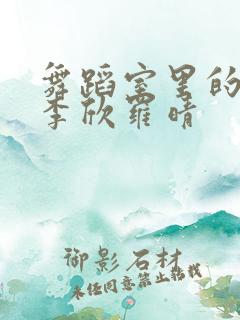 舞蹈室里的
李欣羅晴
御影石材
未经同意禁止转载